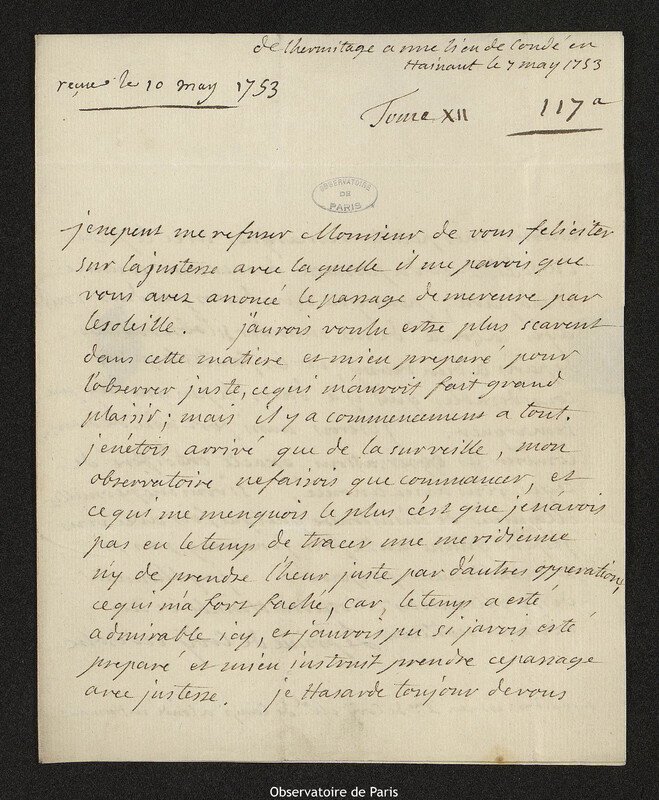 de lhermitage a une lieu de Condé en
Hainaut le 7 may 1753
reçue le 10 may 1753
Tome XII 117a
OBSERVATOIRE
DE
PARIS
je ne peut me refuser Monsieur de vous feliciter
sur la justesse avec laquelle il me parois que
vous avez anoncé le passage de mercure par
le soleille. j'aurois voulu estre plus scavent
dans cette matiere et mieu preparé pour
l'observer juste, ce qui m'auroit fait grand
plaisir; mais il y a commencement a tout.
je n'étois arrivé que de la surveille, mon
observatoire ne faisois que commancer, et
ce qui me menquois le plus c'est que je n'avois
pas eu le temps de tracer une meridienne
n'y de prendre l'heur juste par d'autres opperations,
ce qui m'a fort faché, car, le temps a esté
admirable icy, et j'aurois pu si j'avois esté
preparé et mieu instruit prendre ce passage
avec justesse. je Hasarde toujour de vous
Observatoire de Paris